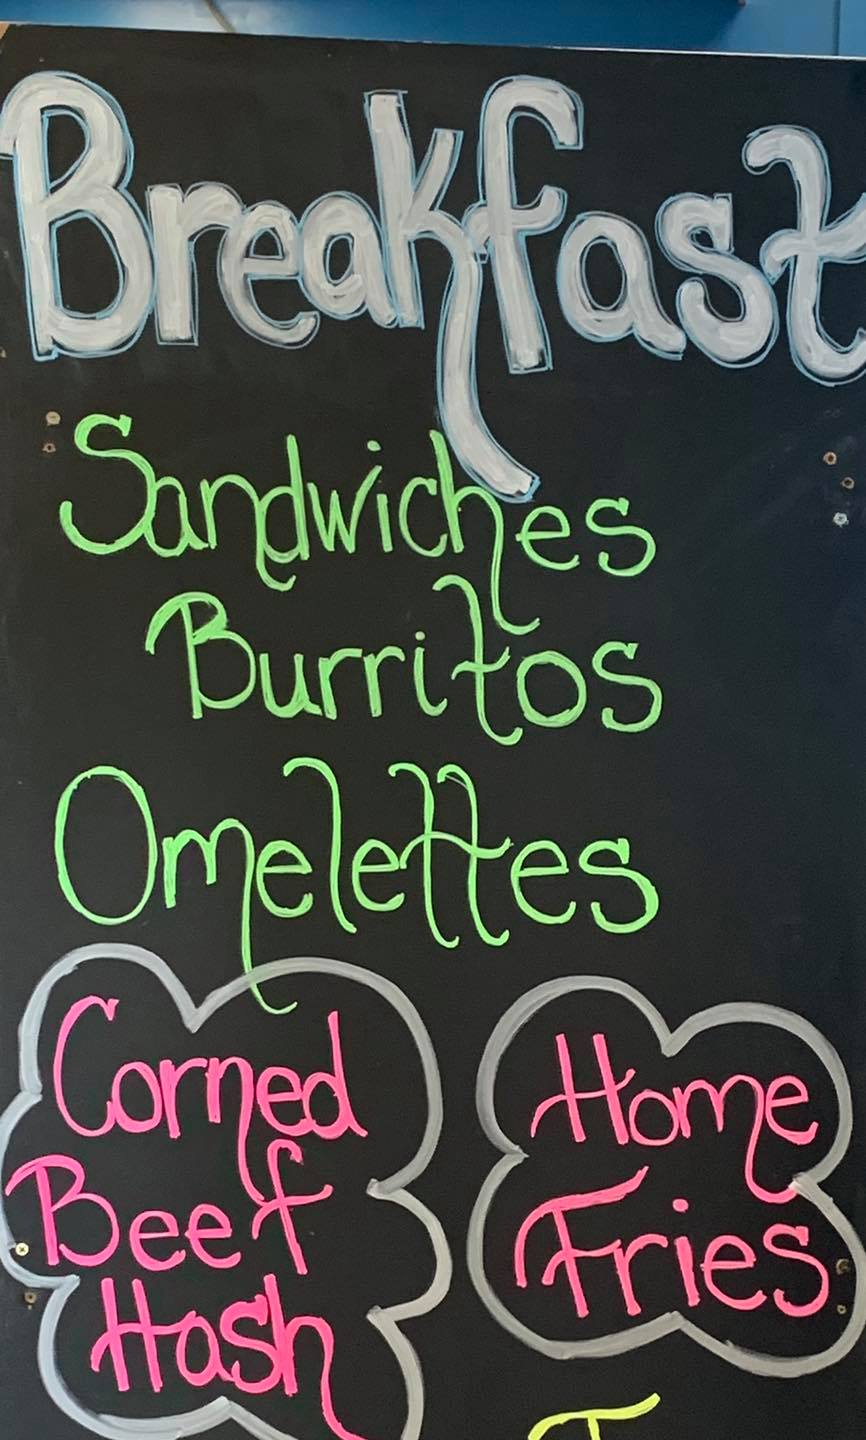 Breakfast
Sandwiches
Burritos
Omelettes
Corned
Beef
Hash
Home
Fries